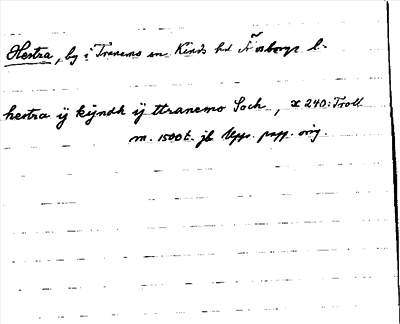 Hestra, by i Tranemo sn Kinds hd Älvsborgs l.
hestra ÿ kÿndh ÿ ttranemo Soch, x 240: Troll
m. 1500 t. jb Upps. papp. orig.